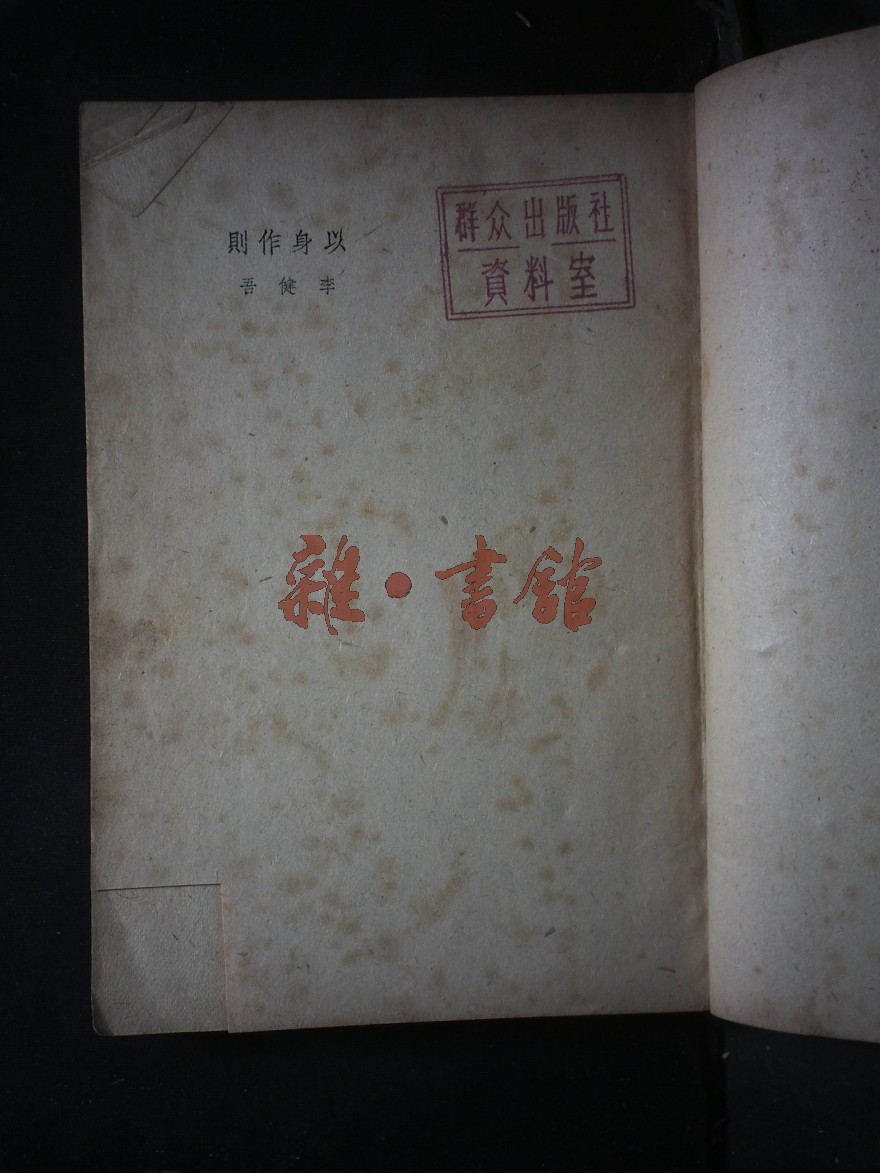 以身作則
李健吾
群众出版社
資料室
雜·書館